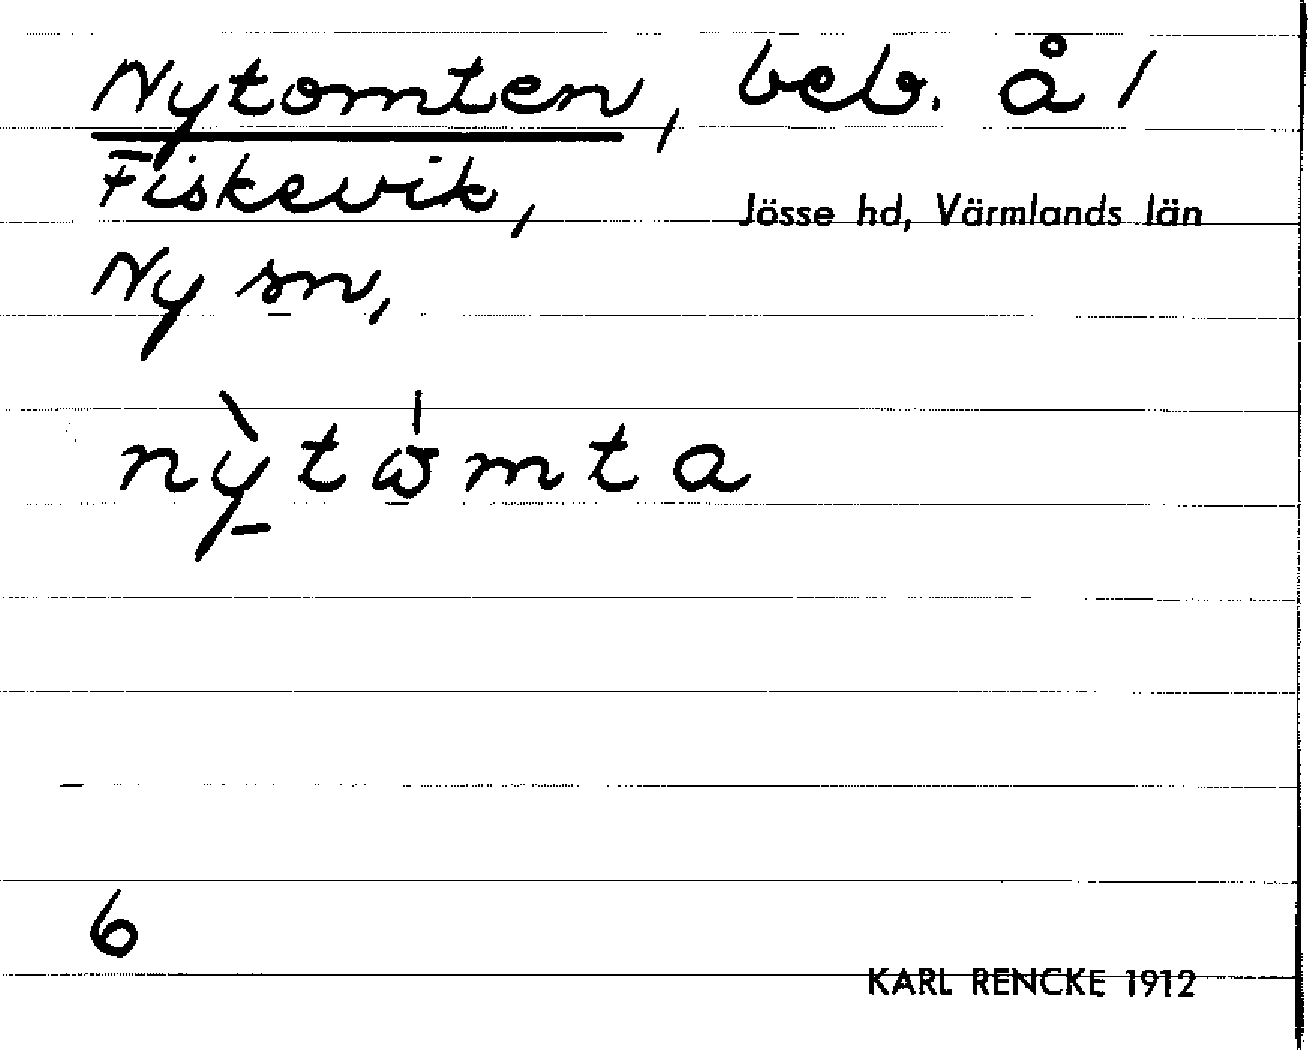 Nytomten, beb. å /
Fiskevik,
Jösse hd, Värmlands län
Ny sn,
nỳ̲tώ̲mta
6
KARL RENCKE 1912